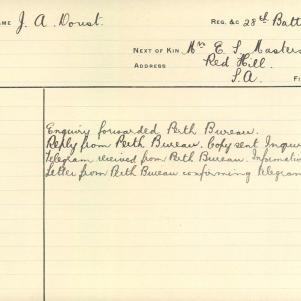 NAME J. A. Doust. REG. &c 28th Batt
NEXT OF KIN Mrs E. S. Masters
ADDRESS Red Hill.
S.A. FI
Enquiry forwarded Perth Bureau.
Reply from Perth Bureau. Copy sent Inquir
Telegram received from Perth Bureau. Information
Letter from Perth Bureau confirming Telegram